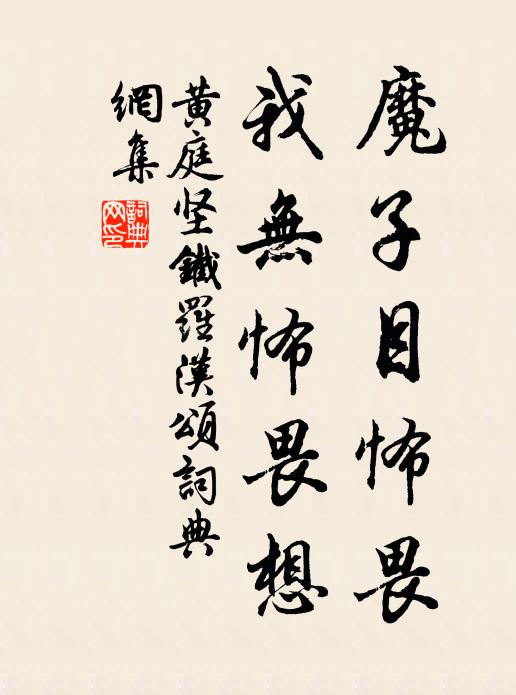 魔子目怖畏
我無怖畏想
黄庭坚鐵羅漢頌詞典
網集
詞典網印